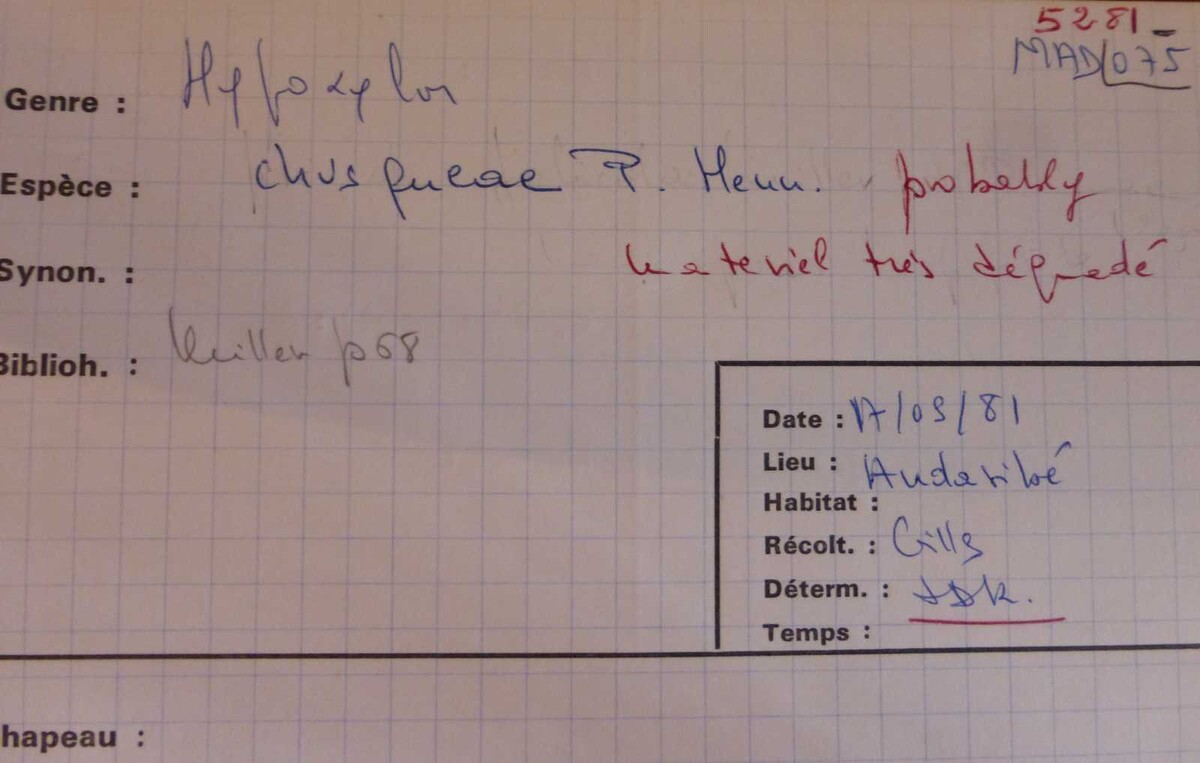 5281_
MAD/075
Genre : Hypoxylon
Espèce : chusqueae P. Henn. probably
Synon. : materiel très dégradé
Biblioh. : Miller p68
Date : 17/09/81
Lieu : Andasibé
Habitat :
Récolt. : Gills
Déterm. :
Temps :
hapeau :